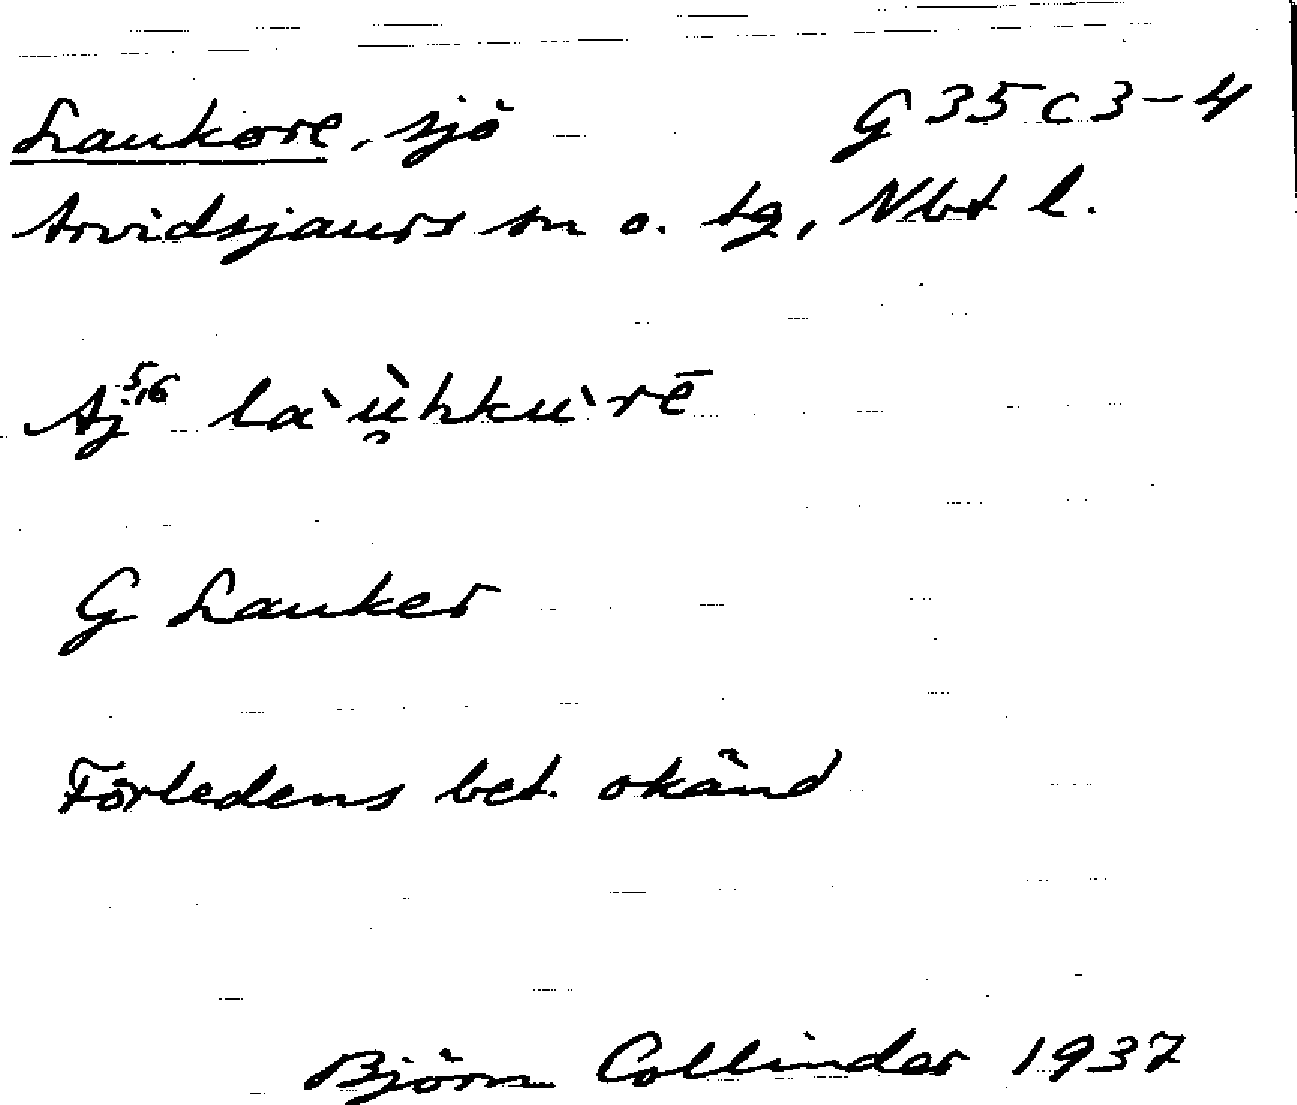 Laukore, sjö G 35 c 3-4
Arvidsjaurs sn o. tg, Nbt l.
Aj 5,6 là ù̯hkùrē
G Lauker
Förledens bet. okänd
Björn Collinder 1937